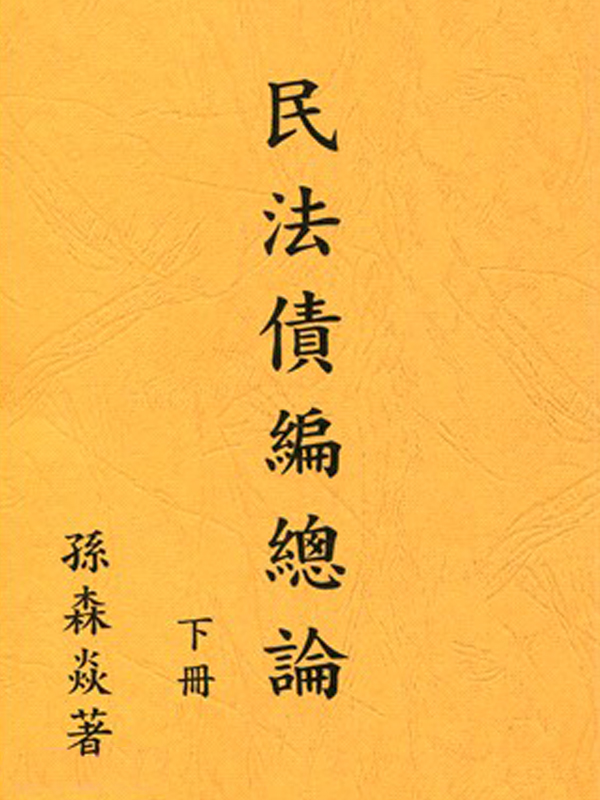 民法債編總論
下冊
孫森焱著